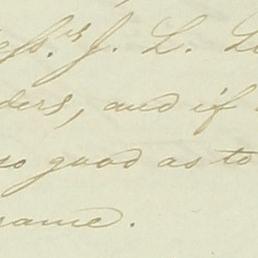 Mess.rs J. L. L
ders, and if
so good as to
same.